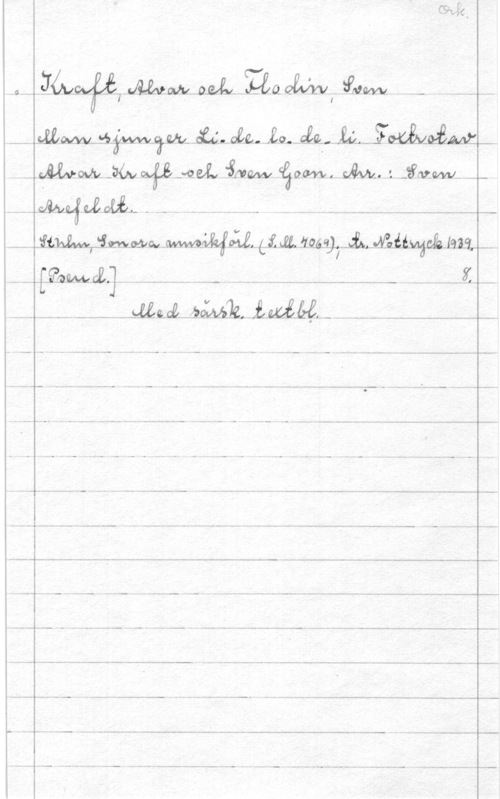 Ork.
Kraft, Alvar och Flodin, Sven
Man sjunger Li- de- lo- de- li. Foxtrot av
Alvar Kraft och Sven Goon. Arr.: Sven
Arefeldt.
Sthlm, Sonora musikförl. (S.M. 7069); tr. Nottryck 1939.
[Pseud.] 8.
Med särsk. textbl.